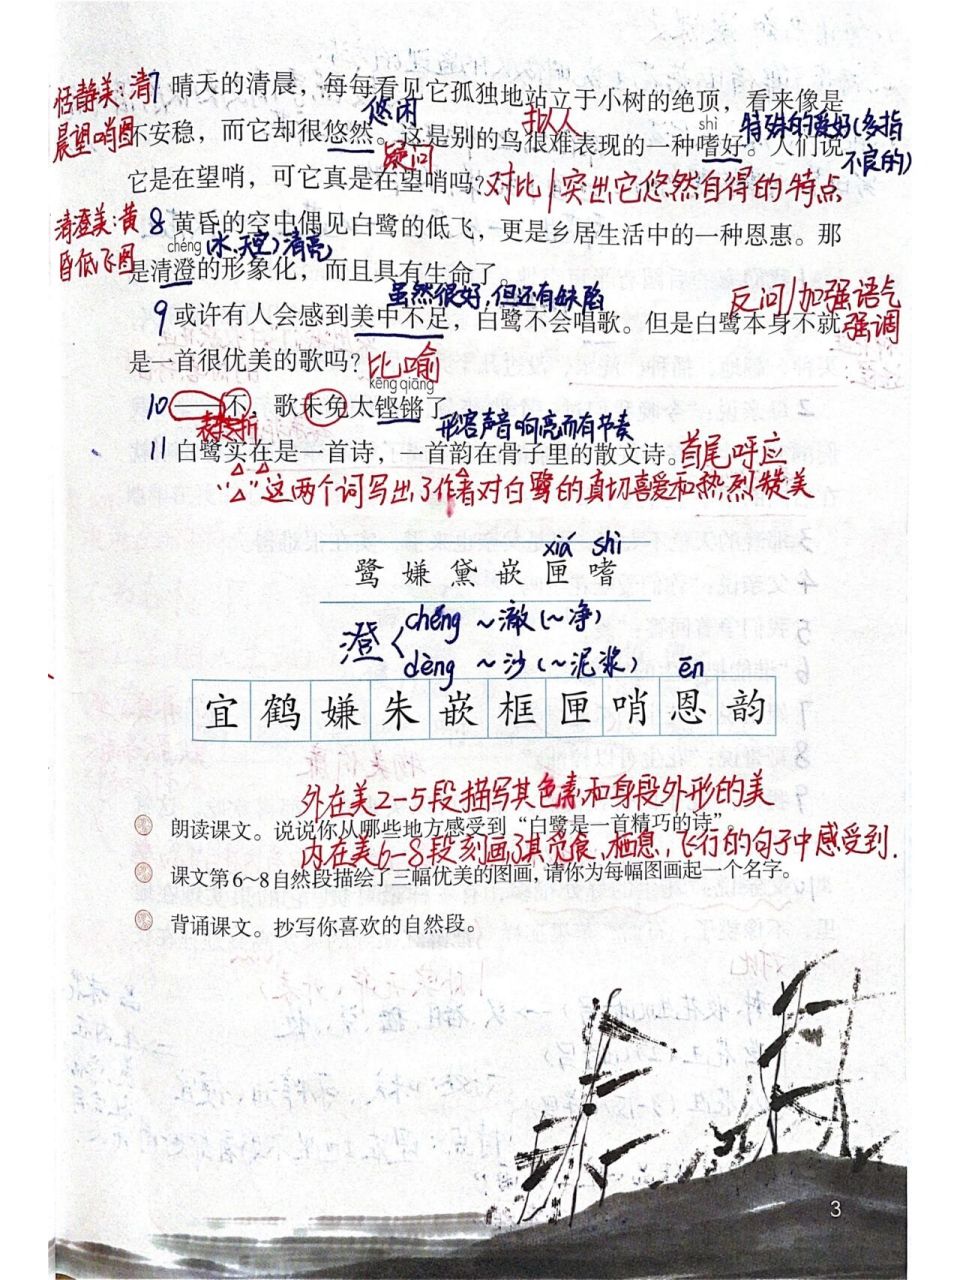 恬静美:清
晨望哨图
7 晴天的清晨，每每看见它孤独地站立于小树的绝顶，看来像是
悠闲 拟人 shì 特殊的爱好(多指
不安稳，而它却很悠然。这是别的鸟很难表现的一种嗜好。人们说
疑问 不良的)
它是在望哨，可它真是在望哨吗？对比/突出它悠然自得的特点
清澄美:黄
昏低飞图
8 黄昏的空中偶见白鹭的低飞，更是乡居生活中的一种恩惠。那
chéng (水、天空)清亮
是清澄的形象化，而且具有生命了。
虽然很好,但还有缺陷 反问/加强语气
9 或许有人会感到美中不足，白鹭不会唱歌。但是白鹭本身不就 强调
是一首很优美的歌吗？比喻
kēng qiāng
10 ——不，歌未免太铿锵了。
表转折 形容声音响亮而有节奏
11 白鹭实在是一首诗，一首韵在骨子里的散文诗。首尾呼应
“△”这两个词写出了作者对白鹭的真切喜爱和热烈赞美
xiá shì
鹭 嫌 黛 嵌 匣 嗜
澄 chéng ~澈(~净)
dèng ~沙(~泥浆) ēn
宜 鹤 嫌 朱 嵌 框 匣 哨 恩 韵
外在美2-5段描写其色素和身段外形的美
朗读课文。说说你从哪些地方感受到“白鹭是一首精巧的诗”。
内在美6-8段刻画了其觅食、栖息、飞行的句子中感受到.
课文第6~8自然段描绘了三幅优美的图画，请你为每幅图画起一个名字。
背诵课文。抄写你喜欢的自然段。
3